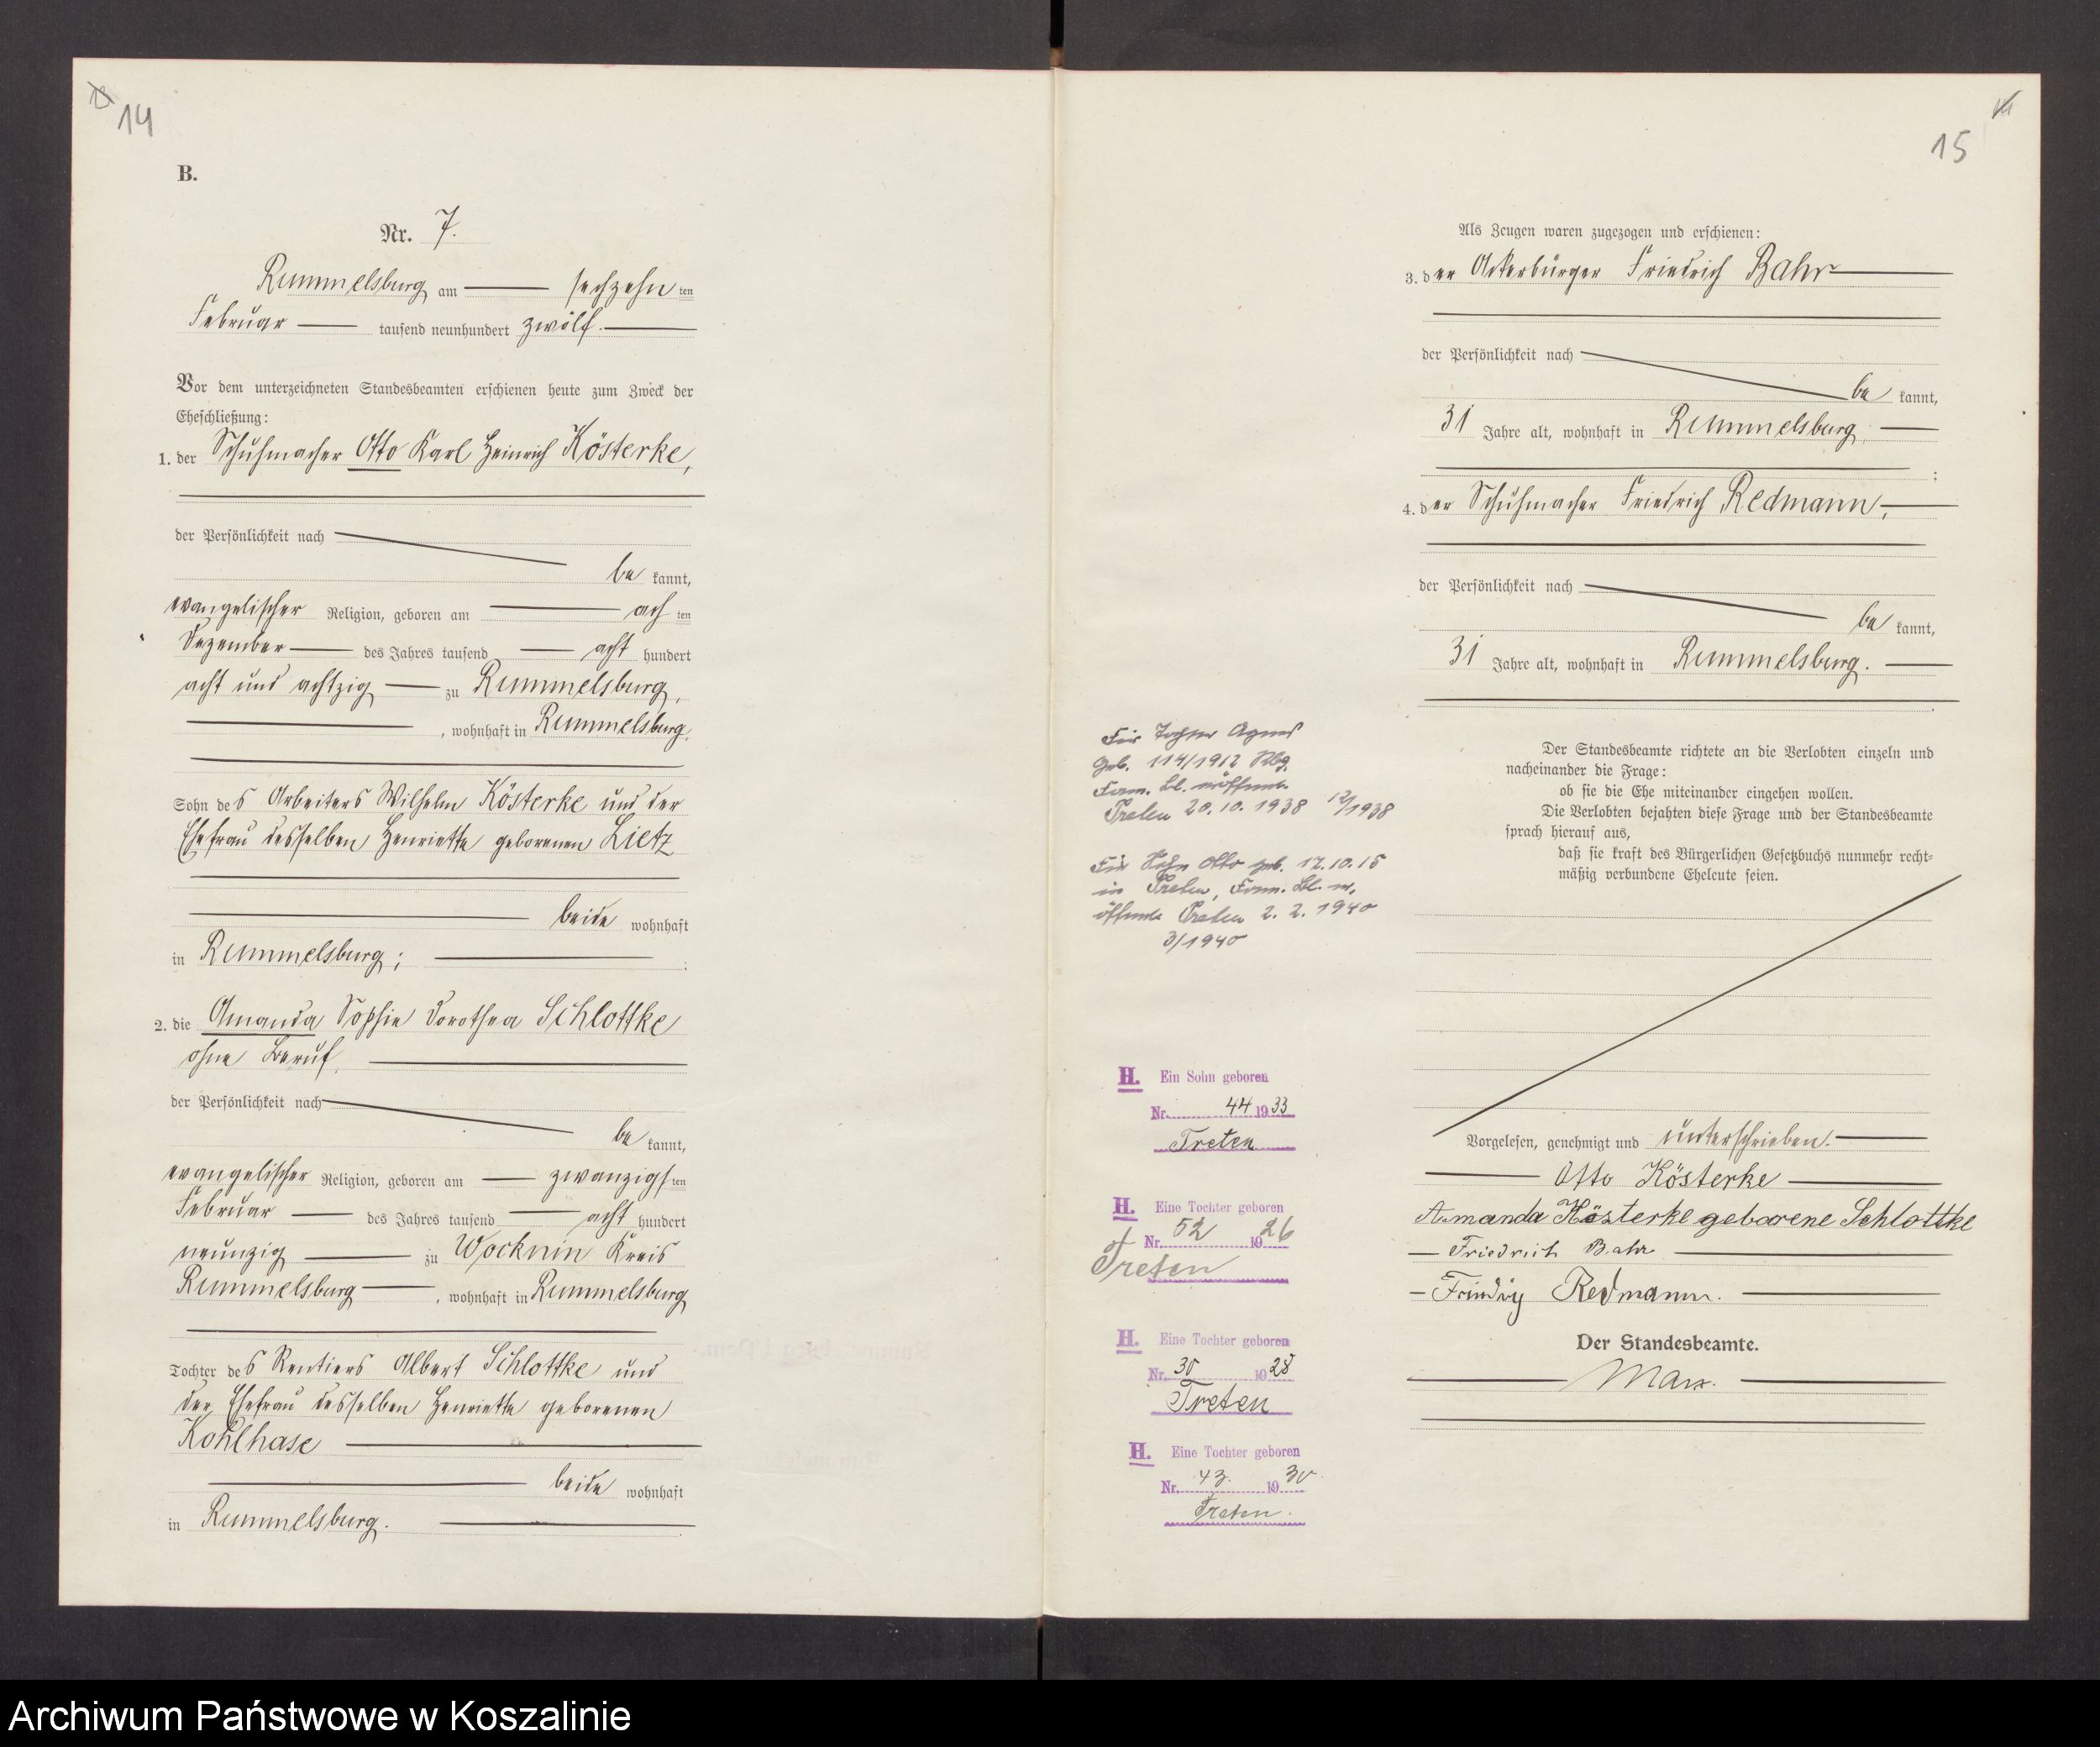 14
B.
Nr. 7.
Rummelsburg am sechzehn ten
Februar tausend neunhundert zwölf.
Vor dem unterzeichneten Standesbeamten erschienen heute zum Zweck der
Eheschließung:
1. der Schuhmacher Otto Karl Heinrich Kösterke,
der Persönlichkeit nach
be kannt,
evangelischer Religion, geboren am ach ten
Dezember des Jahres tausend acht hundert
acht und achtzig zu Rummelsburg,
, wohnhaft in Rummelsburg,
Sohn des Arbeiters Wilhelm Kösterke und der
Ehefrau desselben Henriette geborenen Lietz
beide wohnhaft
in Rummelsburg; ;
2. die Amanda Sophie Dorothea Schlottke
ohne Beruf,
der Persönlichkeit nach
be kannt,
evangelischer Religion, geboren am zwanzigs ten
Februar des Jahres tausend acht hundert
neunzig zu Wocknin Kreis
Rummelsburg , wohnhaft in Rummelsburg
Tochter des Rentiers Albert Schlottke und
der Ehefrau desselben Henriette geborenen
Kohlhase
beide wohnhaft
in Rummelsburg.
15
Als Zeugen waren zugezogen und erschienen:
3. der Ackerbürger Friedrich Bahr
der Persönlichkeit nach
be kannt,
31 Jahre alt, wohnhaft in Rummelsburg
;
4. der Schuhmacher Friedrich Redmann,
der Persönlichkeit nach
be kannt,
31 Jahre alt, wohnhaft in Rummelsburg.
Der Standesbeamte richtete an die Verlobten einzeln und
nacheinander die Frage:
ob sie die Ehe miteinander eingehen wollen.
Die Verlobten bejahten diese Frage und der Standesbeamte
sprach hierauf aus,
daß sie kraft des Bürgerlichen Gesetzbuchs nunmehr recht-
mäßig verbundene Eheleute seien.
Vorgelesen, genehmigt und unterschrieben.
Otto Kösterke
Amanda Kösterke geborene Schlottke
Friedrich Bahr
Friedrich Redmann.
Der Standesbeamte.
Marx.
Für Tochter Agnes
geb. 114/1912 Rbg.
Fam. Bl. eröffnet.
Treten 20.10.1938 12/1938
Für Sohn Otto geb. 17.10.15
in Treten, Fam. Bl. er,
öffnet Treten 2. 2. 1940
3/1940
H. Ein Sohn geboren
Nr. 44 1933
Treten
H. Eine Tochter geboren
Nr. 52 1926
Treten
H. Eine Tochter geboren
Nr. 30 1928
Treten
H. Eine Tochter geboren
Nr. 43. 1930.
Treten.
Archiwum Państwowe w Koszalinie